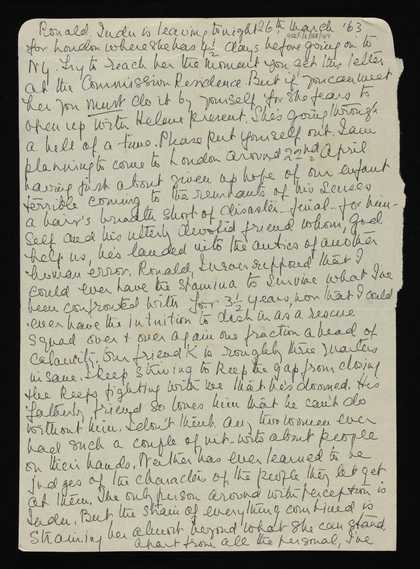 Ronald, Indu is leaving tonight 26th March '63
for London where she has 4½ days before going on to
NY. Try to reach her the moment you get this letter
at the Commission Residence. But if you can meet
her you must do it by yourself for she fears to
open up with Helene present. She's going through
a hell of a time. Please put yourself out. I am
planning to come to London around 22nd April
having just about given up hope of our enfant
terrible coming to the remnants of his senses
a hair's breadth short of disaster for him-
self and his utterly devoted friend whom, God
help us, he's landed into the antics of another
human error. Ronald, I never supposed that I
could ever have the stamina to survive what I've
been confronted with for 3½ years, nor that I could
ever have the intuition to dish in as a rescue
squad over & over again one fraction ahead of
calamity. Our friend K is roughly three quarters
insane. I keep striving to keep the gap from closing
& he keeps fighting with me that he's doomed. His
friend so loves him that he can't do
without him. I don't think any two women ever
had such a couple of nit-wits about people
on their hands. Neither has ever learned to be
judges of the character of the people they let get
at them. The only person around with perception is
Indu. But the strain of everything combined is
straining her almost beyond what she can stand
apart from all the personal, I've